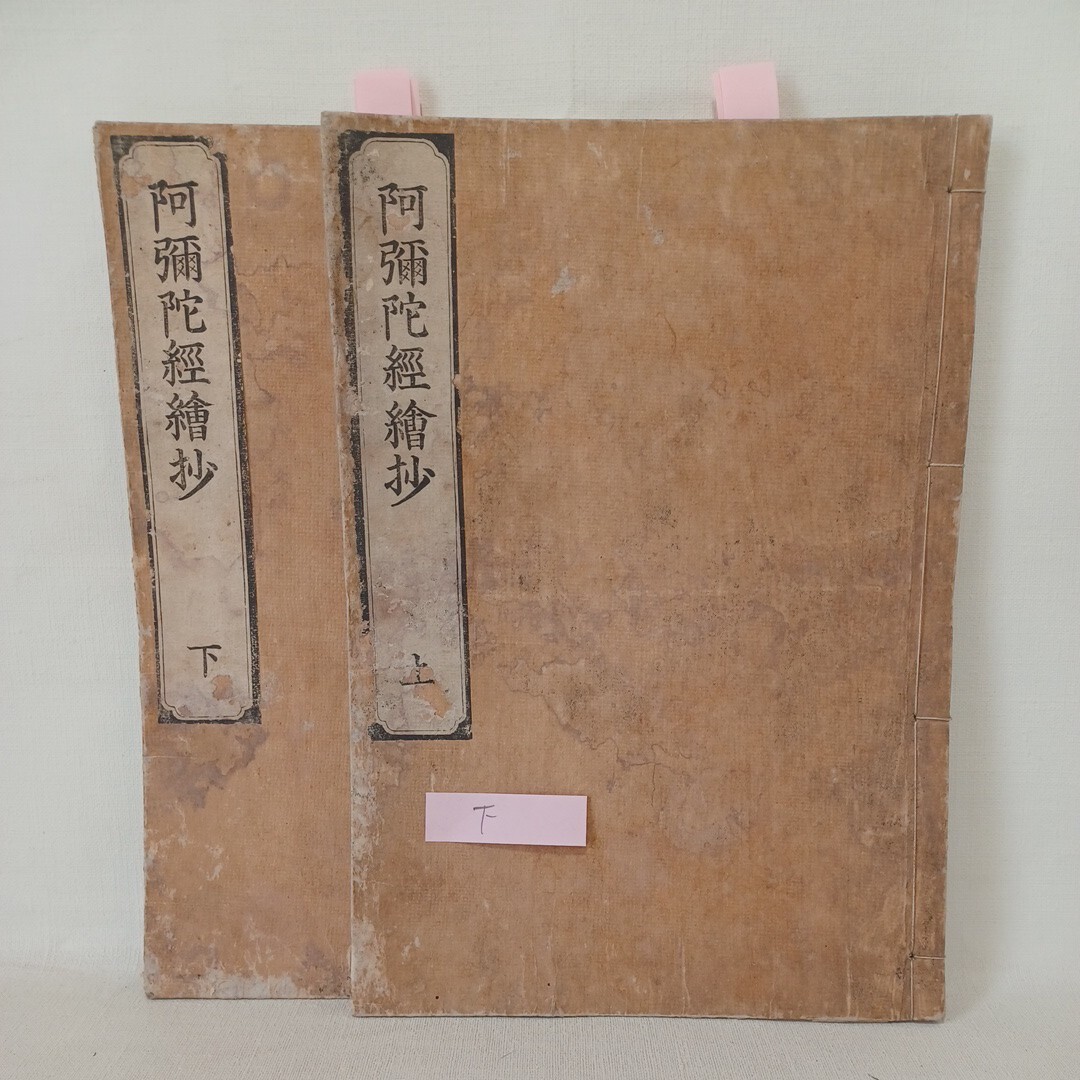 阿彌陀經繪抄
上
阿彌陀經繪抄
下
下